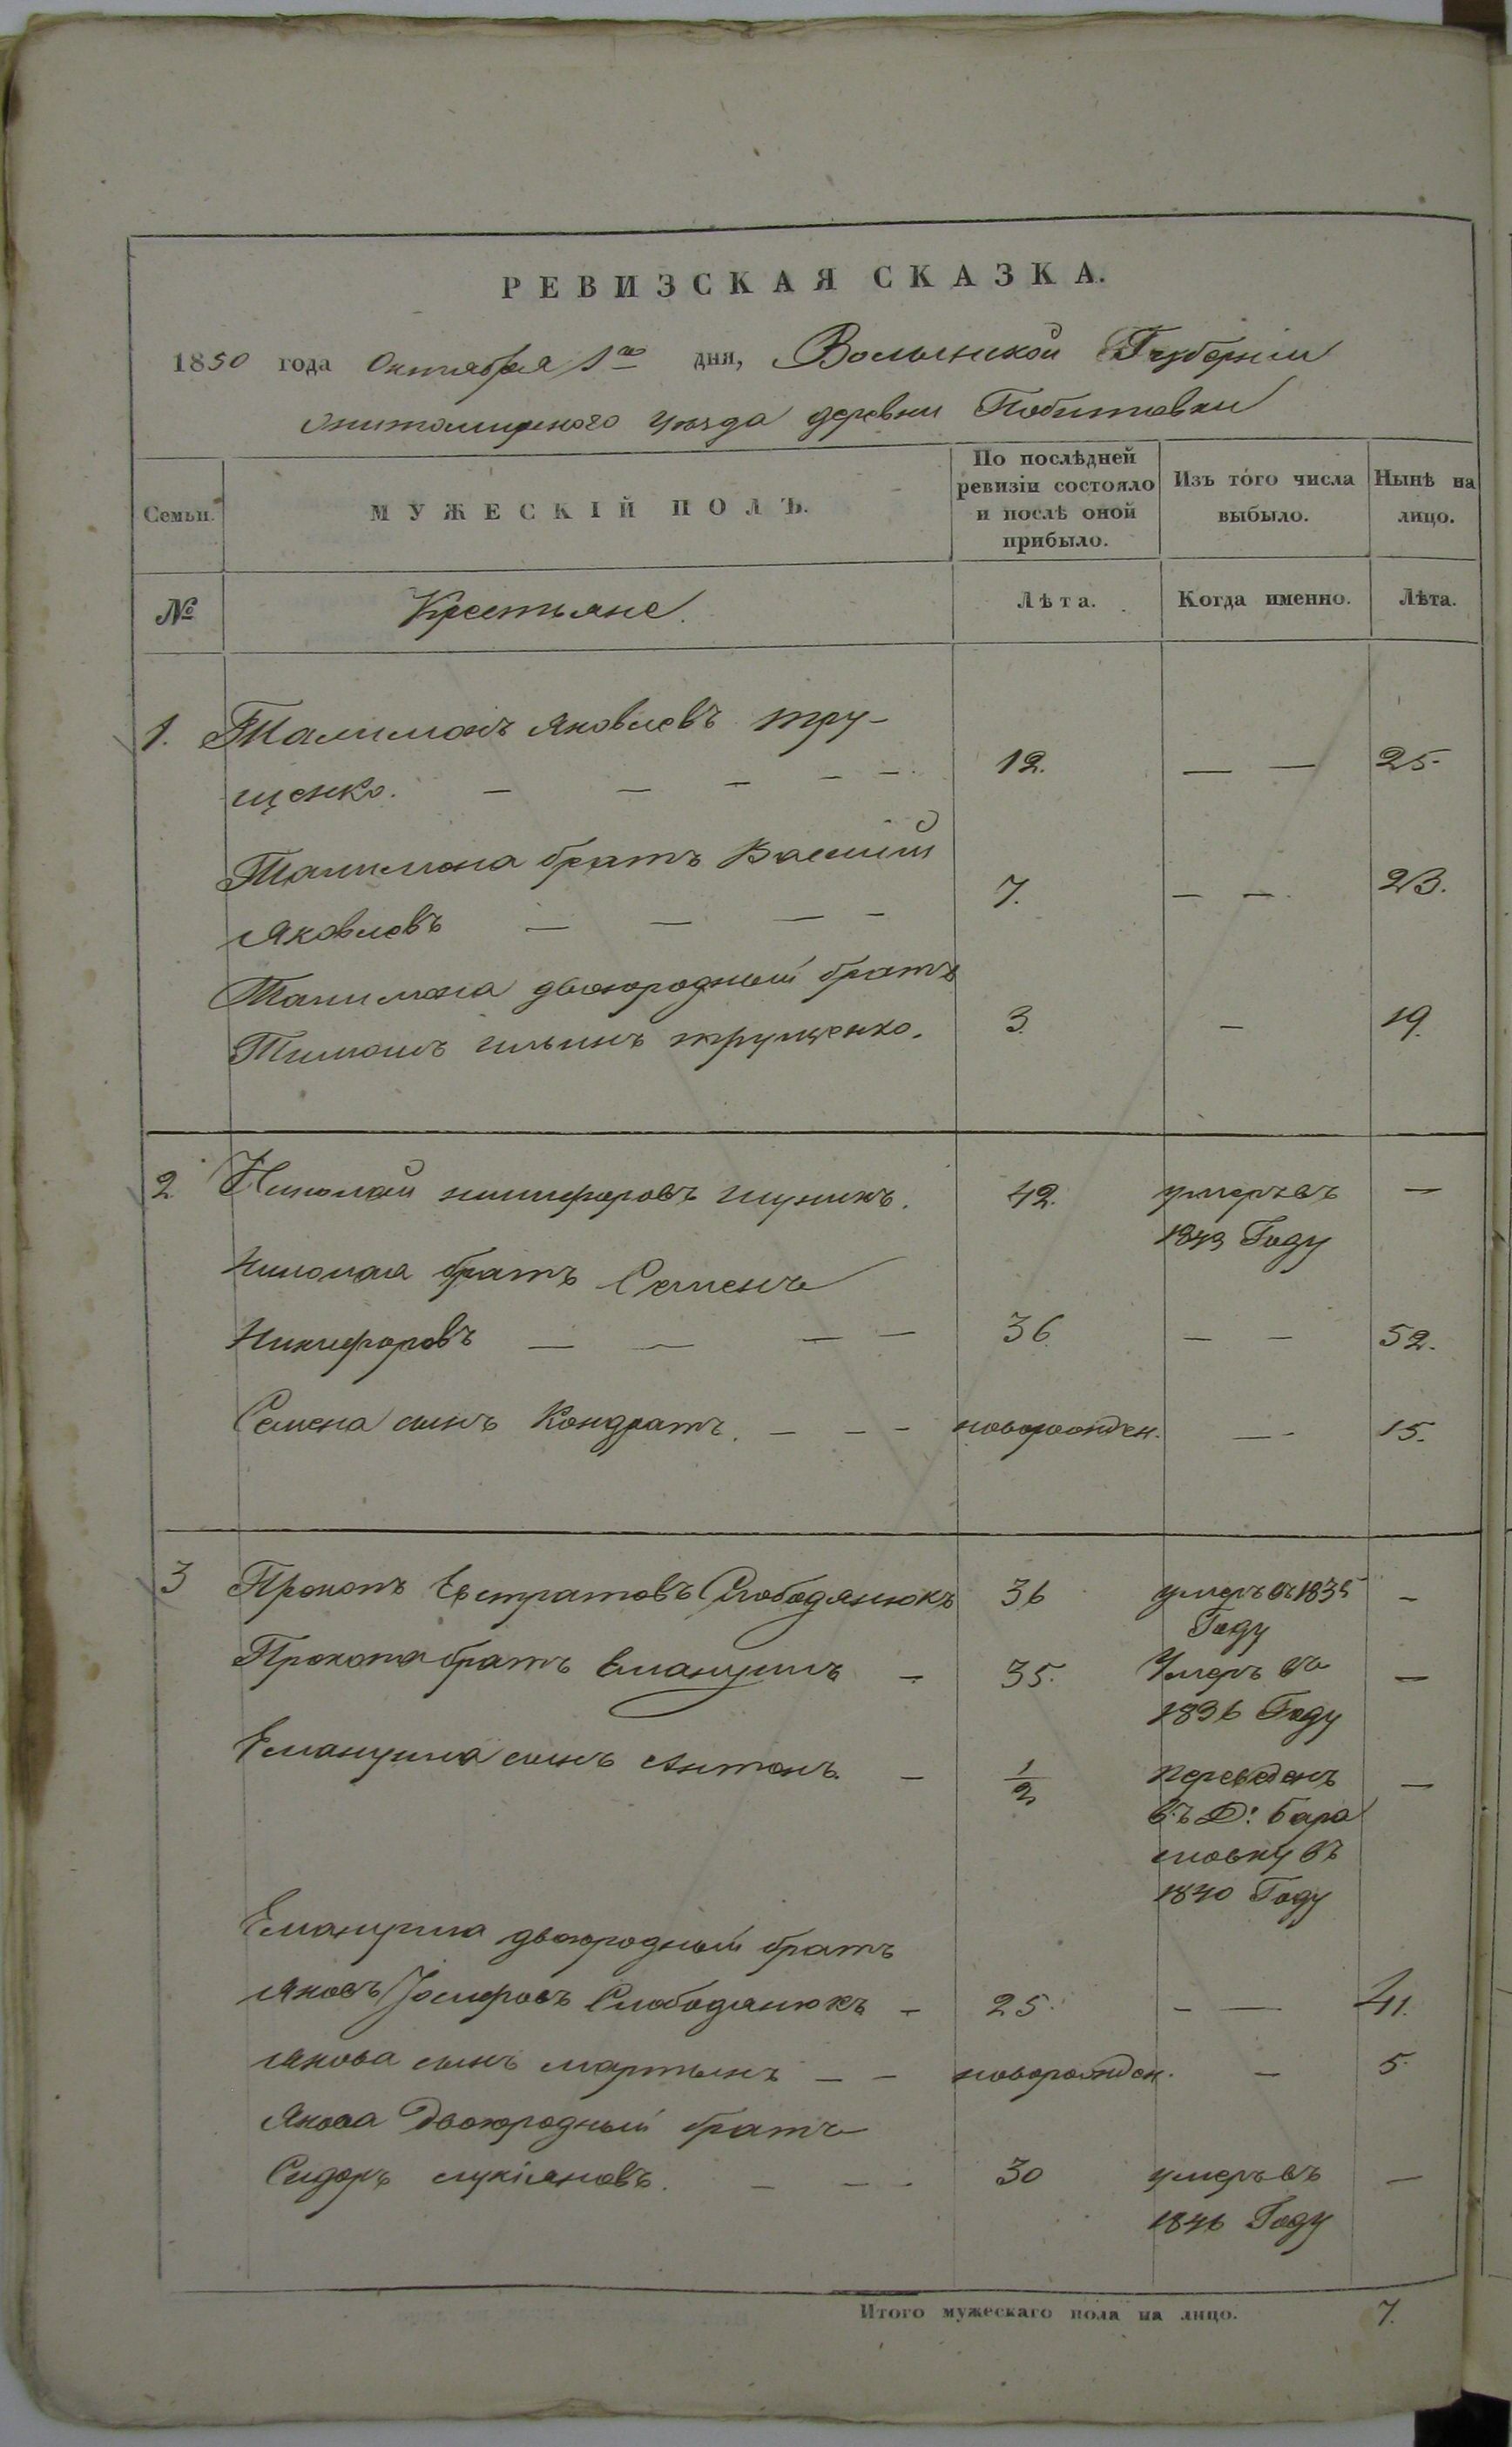 РЕВИЗСКАЯ СКАЗКА.
1850 года Октября 1го дня, Волынской Губерніи
Житомирского уезда деревни
Семьи.
МУЖЕСКІЙ ПОЛЪ.
По послѣдней ревизіи состояло и послѣ оной прибыло.
Изъ того числа выбыло.
Нынѣ на лицо.
№
Крестьяне.
Лѣта.
Когда именно.
Лѣта.
1. Талимонъ Яковлевъ тру-
щенко. — — — — — 12. — — 25.
Талимона братъ Василій
Яковлевъ — — — — 7. — — 23.
Талимона двоюродный братъ
Тимошъ ильинъ трущенко. 3. — 19.
2 Николай никифоровъ 42. умеръ въ —
1843 Году
Николая братъ Семенъ
Никифоровъ — — — — 36. — — 52.
Семена сынъ Кондратъ. — — — новорожден. — — 15.
3 Прокопъ Евстратовъ Слободянюкъ 36 умеръ въ 1835 —
Году
Прокопа братъ Емануилъ — 35. Умеръ въ —
1836 Году
Емануила сынъ Антонъ. — 1/2 переведенъ —
въ Д: Бара
шовку въ
1840 Году
Емануила двоюродный братъ
Яковъ Іосифовъ Слободянюкъ — 25. — — 41.
Якова сынъ мартынъ — — новорожден. — 5.
Якова Двоюродный братъ
Сидоръ лукіяновъ. — — — 30 умеръ въ —
1846 Году
Итого мужескаго пола на лицо. 7.